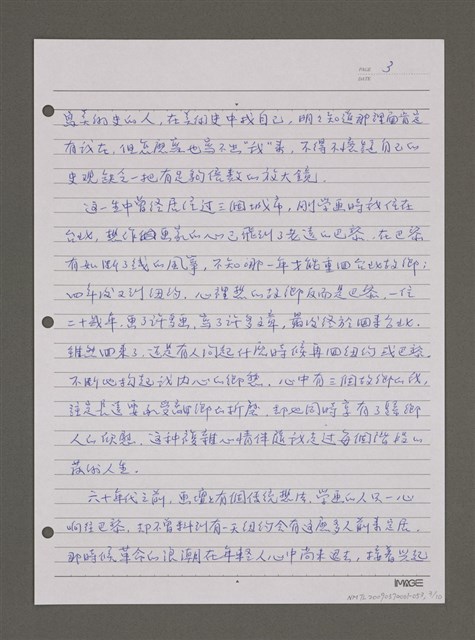 PAGE 3
DATE
寫美術史的人，在美術史中找自己，明明知道那裡面肯定
有我在，但怎麼華也寫不出"我"來，不得不懷疑自己的
史觀缺乏一把有足夠倍數的放大鏡。
這一生中曾經居住過三個城市，剛學畫時我住在
台北，想作畫家的心已飛到了老遠的巴黎，在巴黎
有如斷了線的風箏，不知哪一年才能重回台北故鄉；
四年後又到紐約，心裡想的故鄉反而是巴黎，一住
二十幾年，畫了許多畫，寫了許多文章，最後終於回來台北，
雖然回來了，還是有人問起什麼時候再回紐約或巴黎，
不斷地拘起我內心的鄉愁，心中有三個故鄉的我，
註定長遠要承受思鄉的折磨，却也同時享有了歸鄉
人的欣慰，這种複雜心情伴隨我走過每個階段的
藝術人生。
六十年代之前，畫壇上有個傳統想法，學畫的人只一心
响往巴黎，却不曾料到有一天紐約會有這麼多人前來定居，
那時候革命的浪潮在年輕人心中尚未退去，接着興起
IMAGE